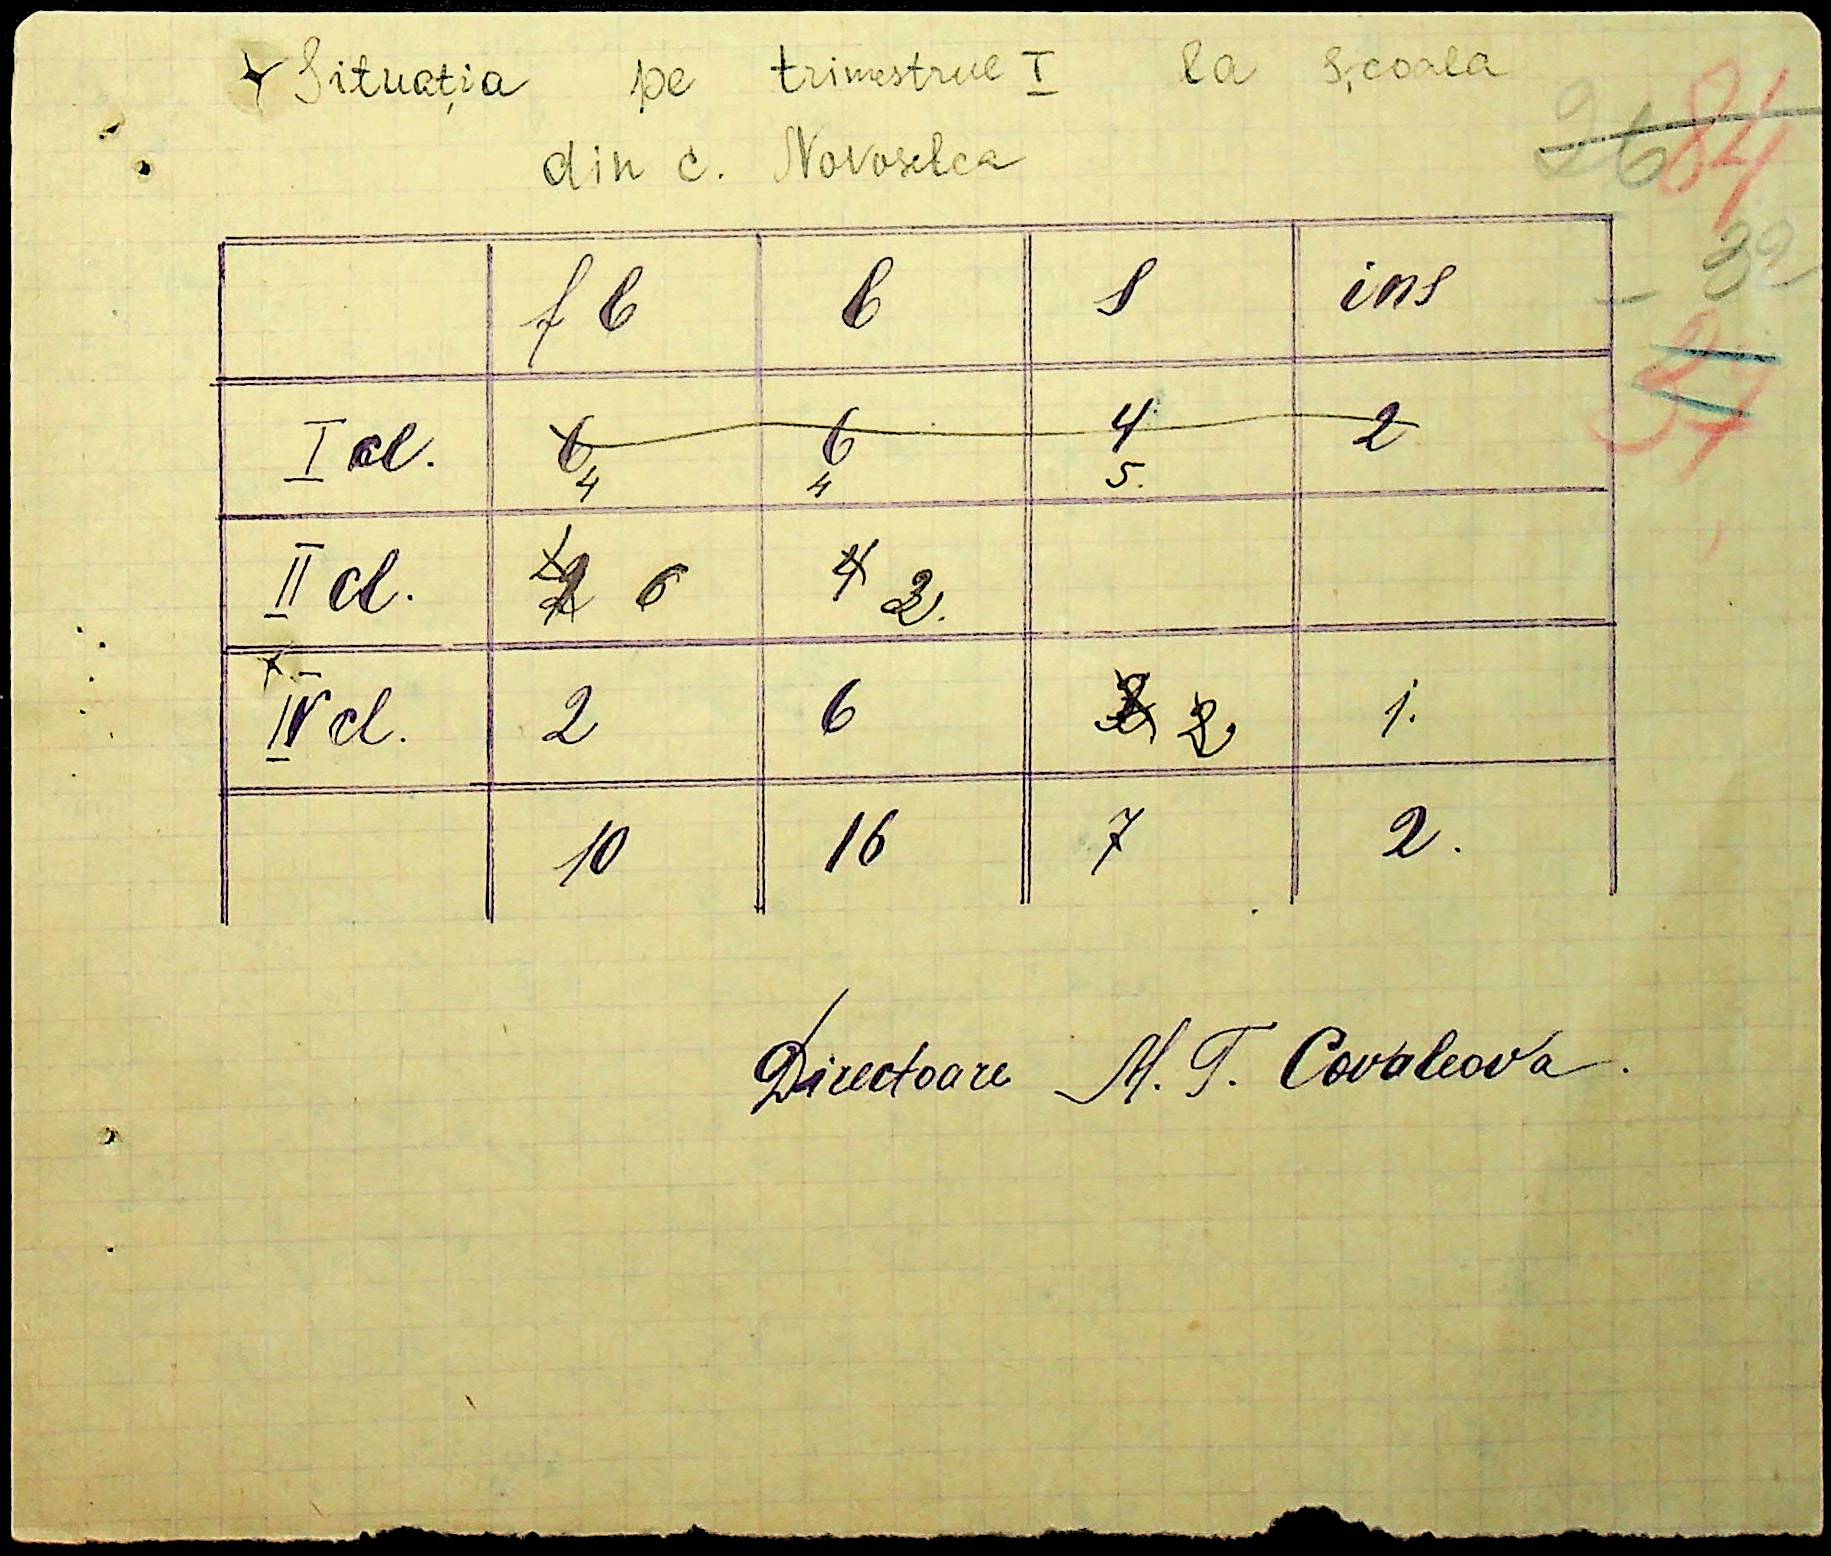 Situația pe trimestrul I la școala
din c. Novoselca
2684
32
37
f b b s ins
I cl. 6 6 4 2
4 4 5.
II cl. 6 4 2.
IV cl. 2 6 2 1.
10 16 7 2.
Directoare M. T. Covaleova.